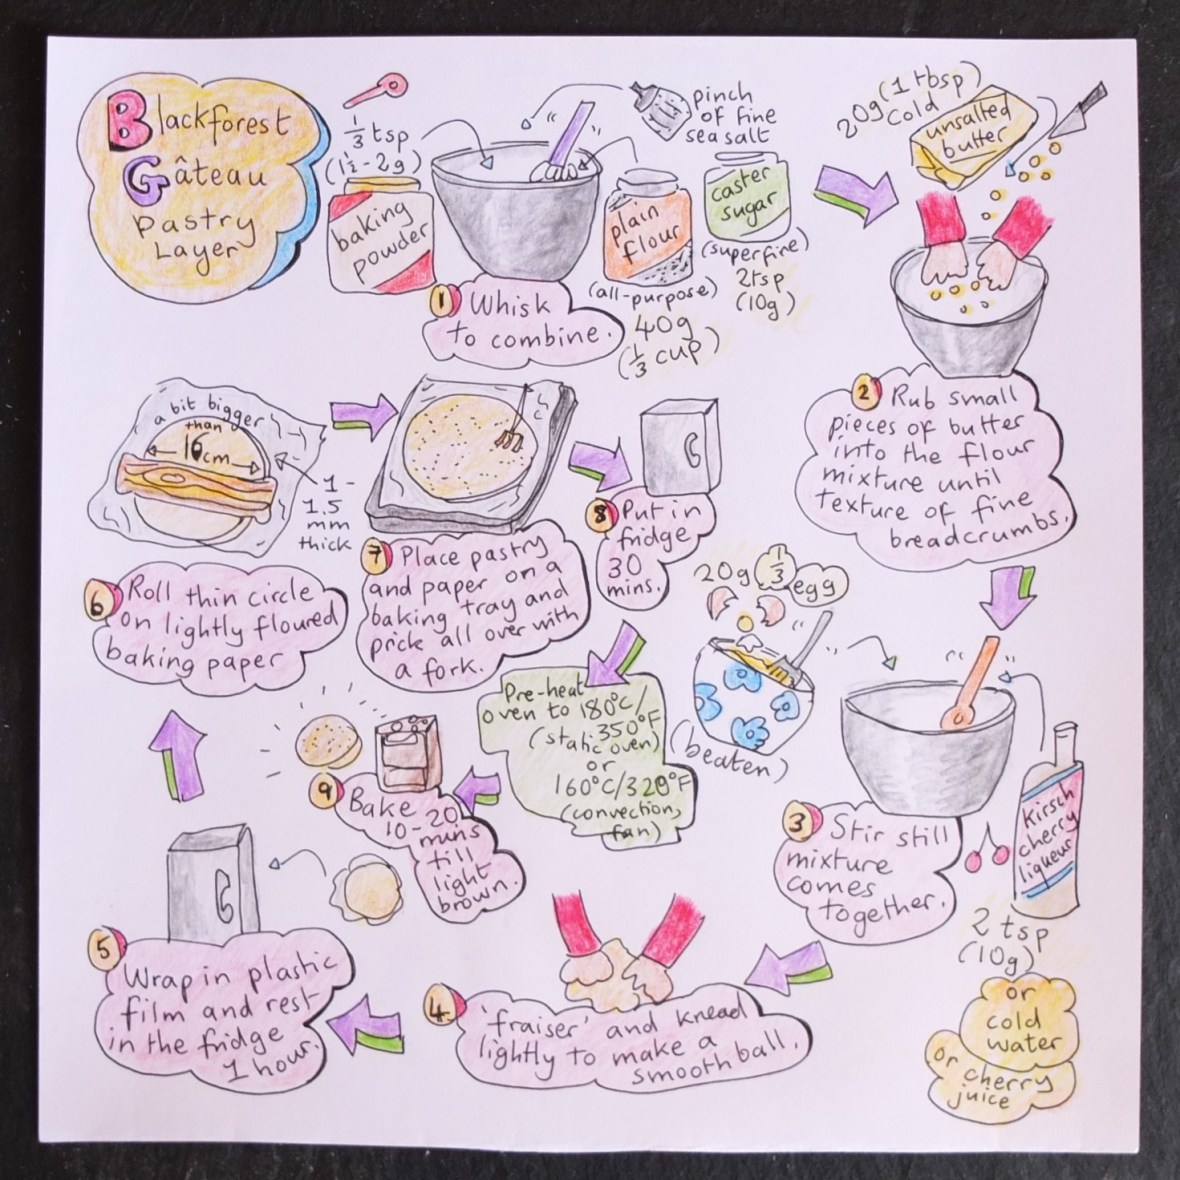 Blackforest
Gâteau
Pastry
Layer
1/3 tsp
(1½-2g)
baking
powder
pinch
of fine
sea salt
plain
flour
(all-purpose)
40g
(1/3 cup)
caster
sugar
(superfine)
2tsp
(10g)
1 Whisk
to combine.
20g (1 tbsp)
cold
unsalted
butter
2 Rub small
pieces of butter
into the flour
mixture until
texture of fine
breadcrumbs.
20g 1/3 egg
(beaten)
kirsch
cherry
liqueur
2 tsp
(10g)
or
cold
water
or cherry
juice
3 Stir still
mixture
comes
together.
4 'fraiser' and knead
lightly to make a
smooth ball.
5 Wrap in plastic
film and rest
in the fridge
1 hour.
a bit bigger
than
16cm
1-
1.5
mm
thick
6 Roll thin circle
on lightly floured
baking paper
7 Place pastry
and paper on a
baking tray and
prick all over with
a fork.
8 Put in
fridge
30
mins.
Pre-heat
oven to 180°C/
350°F
(static oven)
or
160°C/320°F
(convection,
fan)
9 Bake
10-20
mins
till
light
brown.